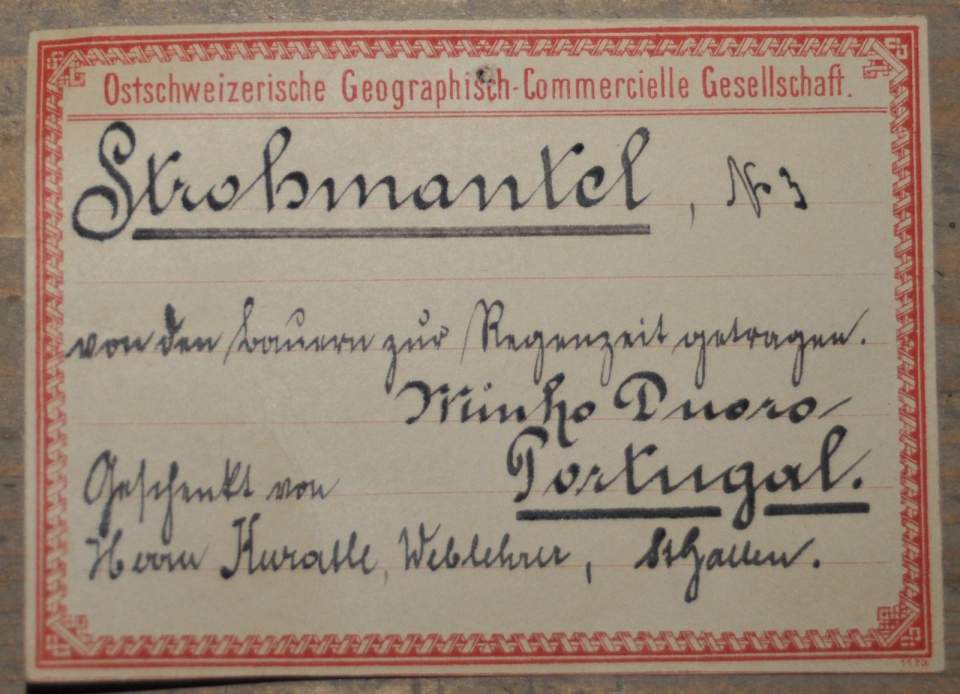 Ostschweizerische Geographisch-Commercielle Gesellschaft.
Strohmantel, № 3
von den Bauern zur Regenzeit getragen.
Minho Duoro
Portugal.
Geschenkt von
Herrn Kuratle, Weblehrer, St Gallen.
1173